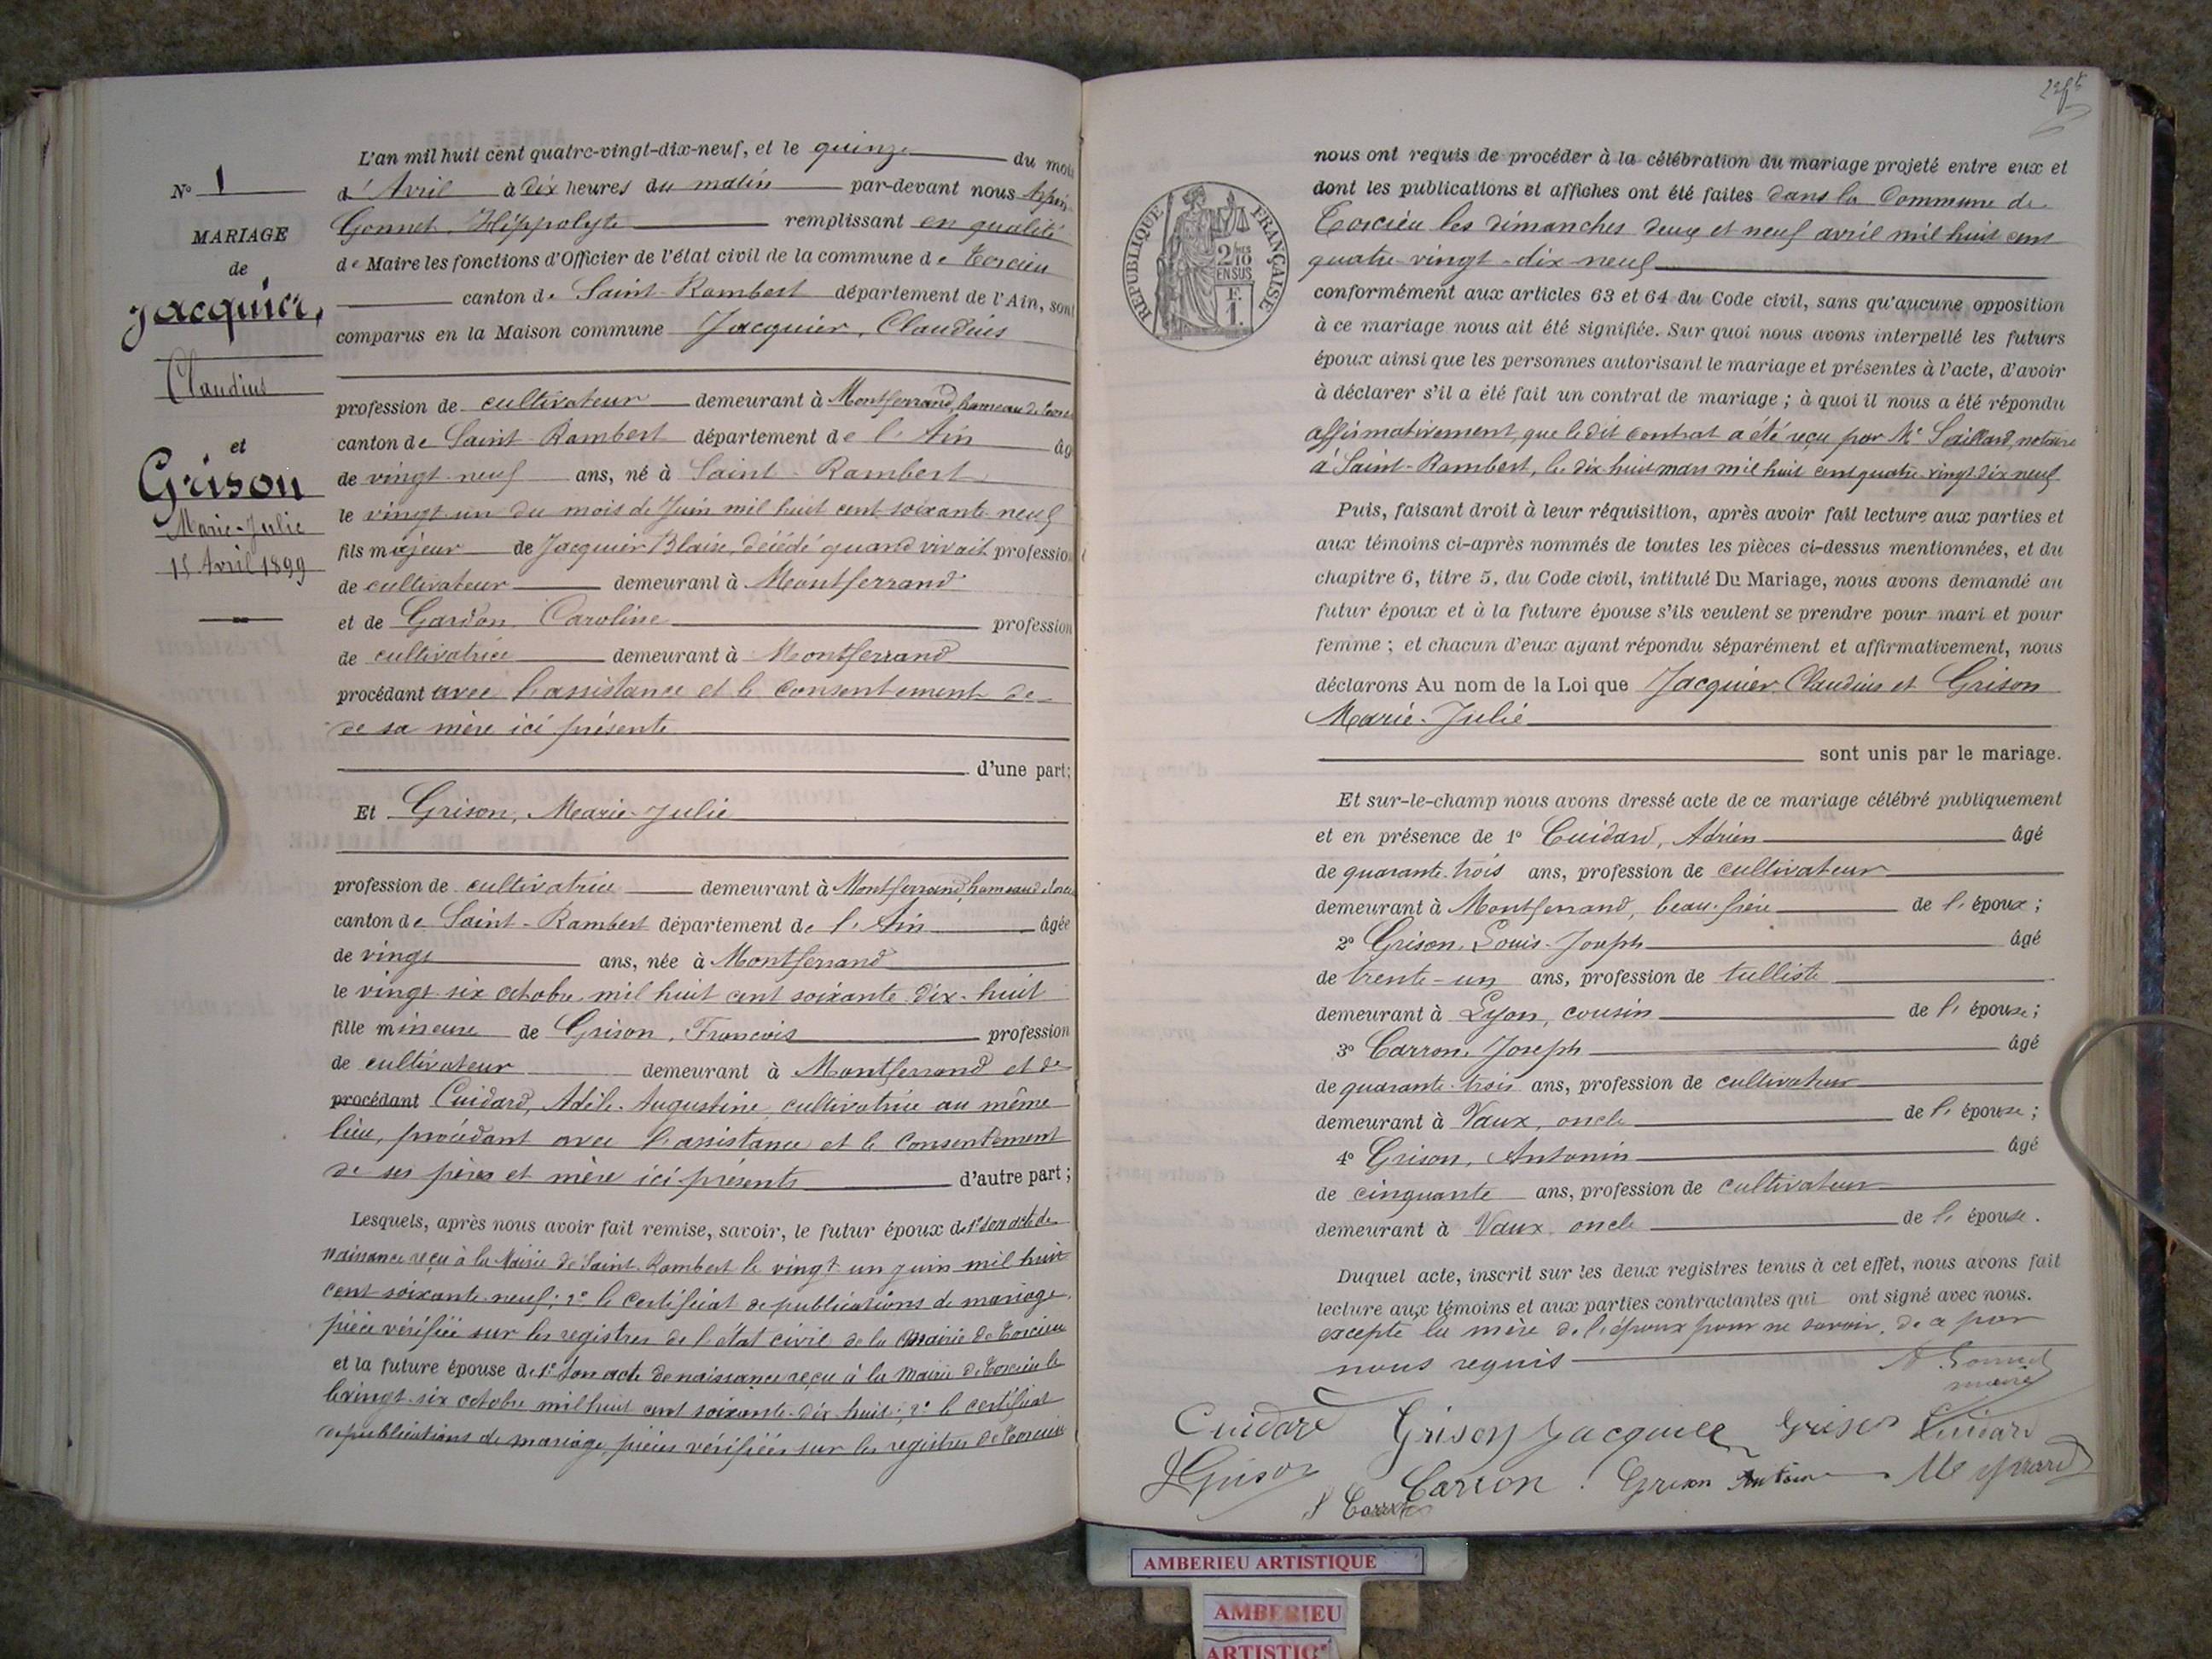 N° 1
MARIAGE
de
Jacquier,
Claudius
et
Grison
Marie-Julie
15 Avril 1899
L'an mil huit cent quatre-vingt-dix-neuf, et le quinze du mois
d'Avril à dix heures du matin par-devant nous
Gonnet, Hippolyte remplissant en qualité
de Maire les fonctions d'Officier de l'état civil de la commune de Torcieu
canton de Saint-Rambert département de l'Ain, sont
comparus en la Maison commune Jacquier, Claudius
profession de cultivateur demeurant à Montferrand, hameau de
canton de Saint-Rambert département de l'Ain âg
de vingt-neuf ans, né à Saint-Rambert
le vingt-un du mois de Juin mil huit cent soixante-neuf
fils majeur de Jacquier Blaise, décédé quand vivait profession
de cultivateur demeurant à Montferrand
et de Gardon Caroline profession
de cultivatrice demeurant à Montferrand
procédant avec l'assistance et le consentement de
de sa mère ici présente
d'une part;
Et Grison, Marie-Julie
profession de cultivatrice demeurant à Montferrand, hameau
canton de Saint-Rambert département de l'Ain âgée
de vingt ans, née à Montferrand
le vingt-six octobre mil huit cent soixante-dix-huit
fille mineure de Grison, François profession
de cultivateur demeurant à Montferrand et de
procédant Cuidard, Adèle-Augustine, cultivatrice au même
lieu, procédant avec l'assistance et le consentement
de ses pères et mère ici présents d'autre part;
Lesquels, après nous avoir fait remise, savoir, le futur époux de 1° son acte de
naissance reçu à la Mairie de Saint-Rambert le vingt-un juin mil huit
cent soixante-neuf; 2° le certificat de publications de mariage,
pièce vérifiée sur les registres de l'état civil de la mairie de Torcieu
et la future épouse de 1° son acte de naissance reçu à la Mairie de Torcieu le
le vingt-six octobre mil huit cent soixante-dix-huit; 2° le certificat
de publications de mariage, pièces vérifiées sur les registres de Torcieu
RÉPUBLIQUE FRANÇAISE
2/10
EN SUS
F.
1.
nous ont requis de procéder à la célébration du mariage projeté entre eux et
dont les publications et affiches ont été faites dans la Commune de
Torcieu les dimanches deux et neuf avril mil huit cent
quatre-vingt-dix-neuf
conformément aux articles 63 et 64 du Code civil, sans qu'aucune opposition
à ce mariage nous ait été signifiée. Sur quoi nous avons interpellé les futurs
époux ainsi que les personnes autorisant le mariage et présentes à l'acte, d'avoir
à déclarer s'il a été fait un contrat de mariage; à quoi il nous a été répondu
affirmativement, que le dit contrat a été reçu par Me Saillard, notaire
à Saint-Rambert, le dix-huit mars mil huit cent quatre-vingt-dix-neuf
Puis, faisant droit à leur réquisition, après avoir fait lecture aux parties et
aux témoins ci-après nommés de toutes les pièces ci-dessus mentionnées, et du
chapitre 6, titre 5, du Code civil, intitulé Du Mariage, nous avons demandé au
futur époux et à la future épouse s'ils veulent se prendre pour mari et pour
femme; et chacun d'eux ayant répondu séparément et affirmativement, nous
déclarons Au nom de la Loi que Jacquier, Claudius et Grison
Marie-Julie
sont unis par le mariage.
Et sur-le-champ nous avons dressé acte de ce mariage célébré publiquement
et en présence de 1° Cuidard, Adrien âgé
de quarante-trois ans, profession de cultivateur
demeurant à Montferrand, beau-frère de l'époux;
2° Grison, Louis-Joseph âgé
de trente-un ans, profession de tulliste
demeurant à Lyon, cousin de l'épouse;
3° Carron, Joseph âgé
de quarante-trois ans, profession de cultivateur
demeurant à Vaux, oncle de l'épouse;
4° Grison, Antonin âgé
de cinquante ans, profession de cultivateur
demeurant à Vaux, oncle de l'épouse.
Duquel acte, inscrit sur les deux registres tenus à cet effet, nous avons fait
lecture aux témoins et aux parties contractantes qui ont signé avec nous.
excepté la mère de l'époux pour ne savoir, de ce par
nous requis H Gonnet
maire
Cuidard Grison Jacquier Grison Cuidard
J Grison Carron Grison Antonin
J Carron
AMBERIEU ARTISTIQUE
AMBERIEU
ARTISTIQ